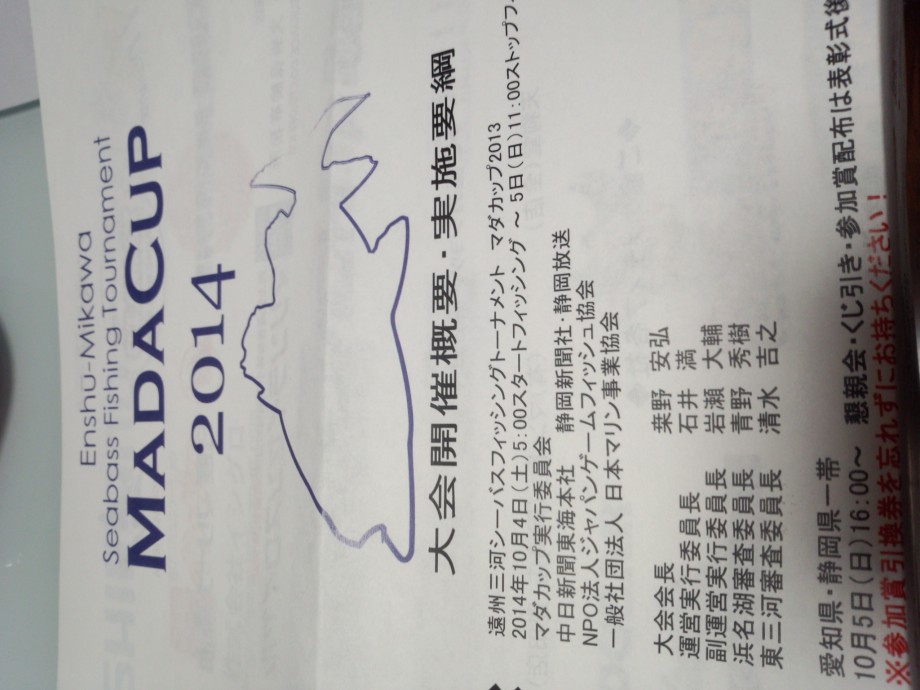 Enshu-Mikawa
Seabass Fishing Tournament
MADACUP
2014
大会開催概要・実施要綱
遠州三河シーバスフィッシングトーナメント マダカップ2013
2014年10月4日(土)5:00スタートフィッシング ~ 5日(日)11:00ストップフ
マダカップ実行委員会
中日新聞東海本社 静岡新聞社・静岡放送
NPO法人ジャパンゲームフィッシュ協会
一般社団法人 日本マリン事業協会
大会会長 桒野 安弘
運営実行委員長 石井 満
副運営実行委員長 岩瀬 大輔
浜名湖審査委員長 青野 秀樹
東三河審査委員長 清水 吉之
愛知県・静岡県一帯
10月5日(日)16:00~ 懇親会・くじ引き・参加賞配布は表彰式後
※参加賞引換券を忘れずにお持ちください!